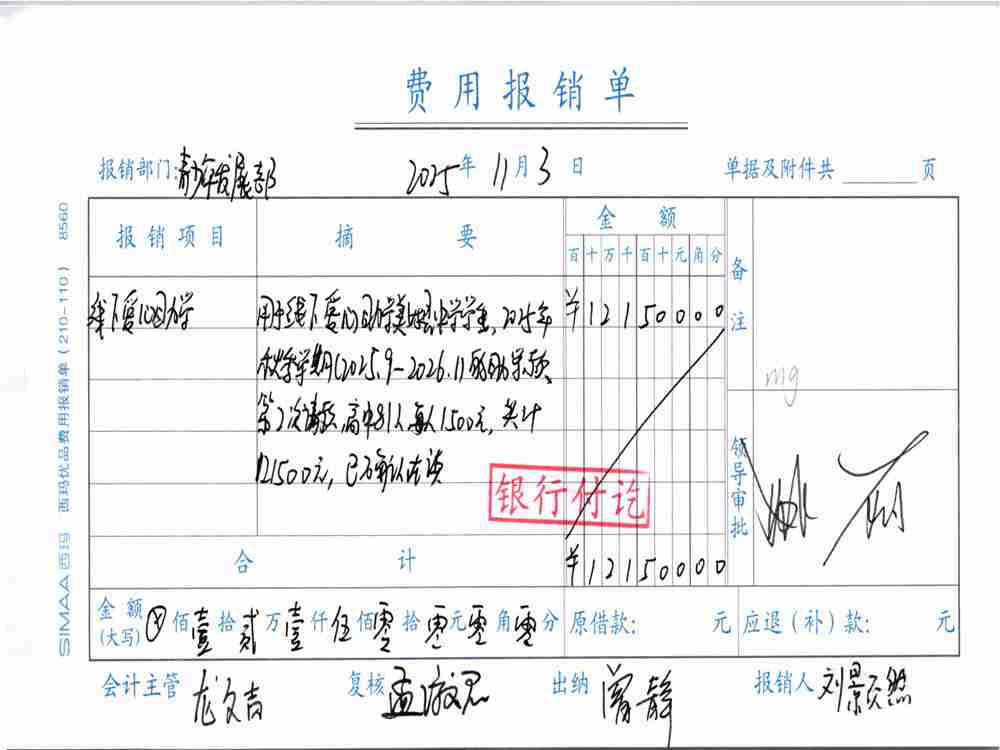 费用报销单
报销部门:青少年发展部 2025年 11月3日 单据及附件共 页
报销项目 摘要 金额 备注
百十万千百十元角分
线下爱心助学 用于线下爱心助学美姑中学学生, 2025年 ¥12150000
秋季学期(2025.9-2026.1)的助学款
第2次请款,高中81人每人1500元,共计
121500元,已确认在读
mg
银行付讫
领导审批
合计 ¥12150000
金额(大写) ⊗佰壹拾贰万壹仟伍佰零拾零元零角零分 原借款: 元 应退(补)款: 元
会计主管 龙文吉 复核 孟淑思 出纳 曾静 报销人 刘景颢然
SIMAA西玛 西玛优品费用报销单(210-110) 8560